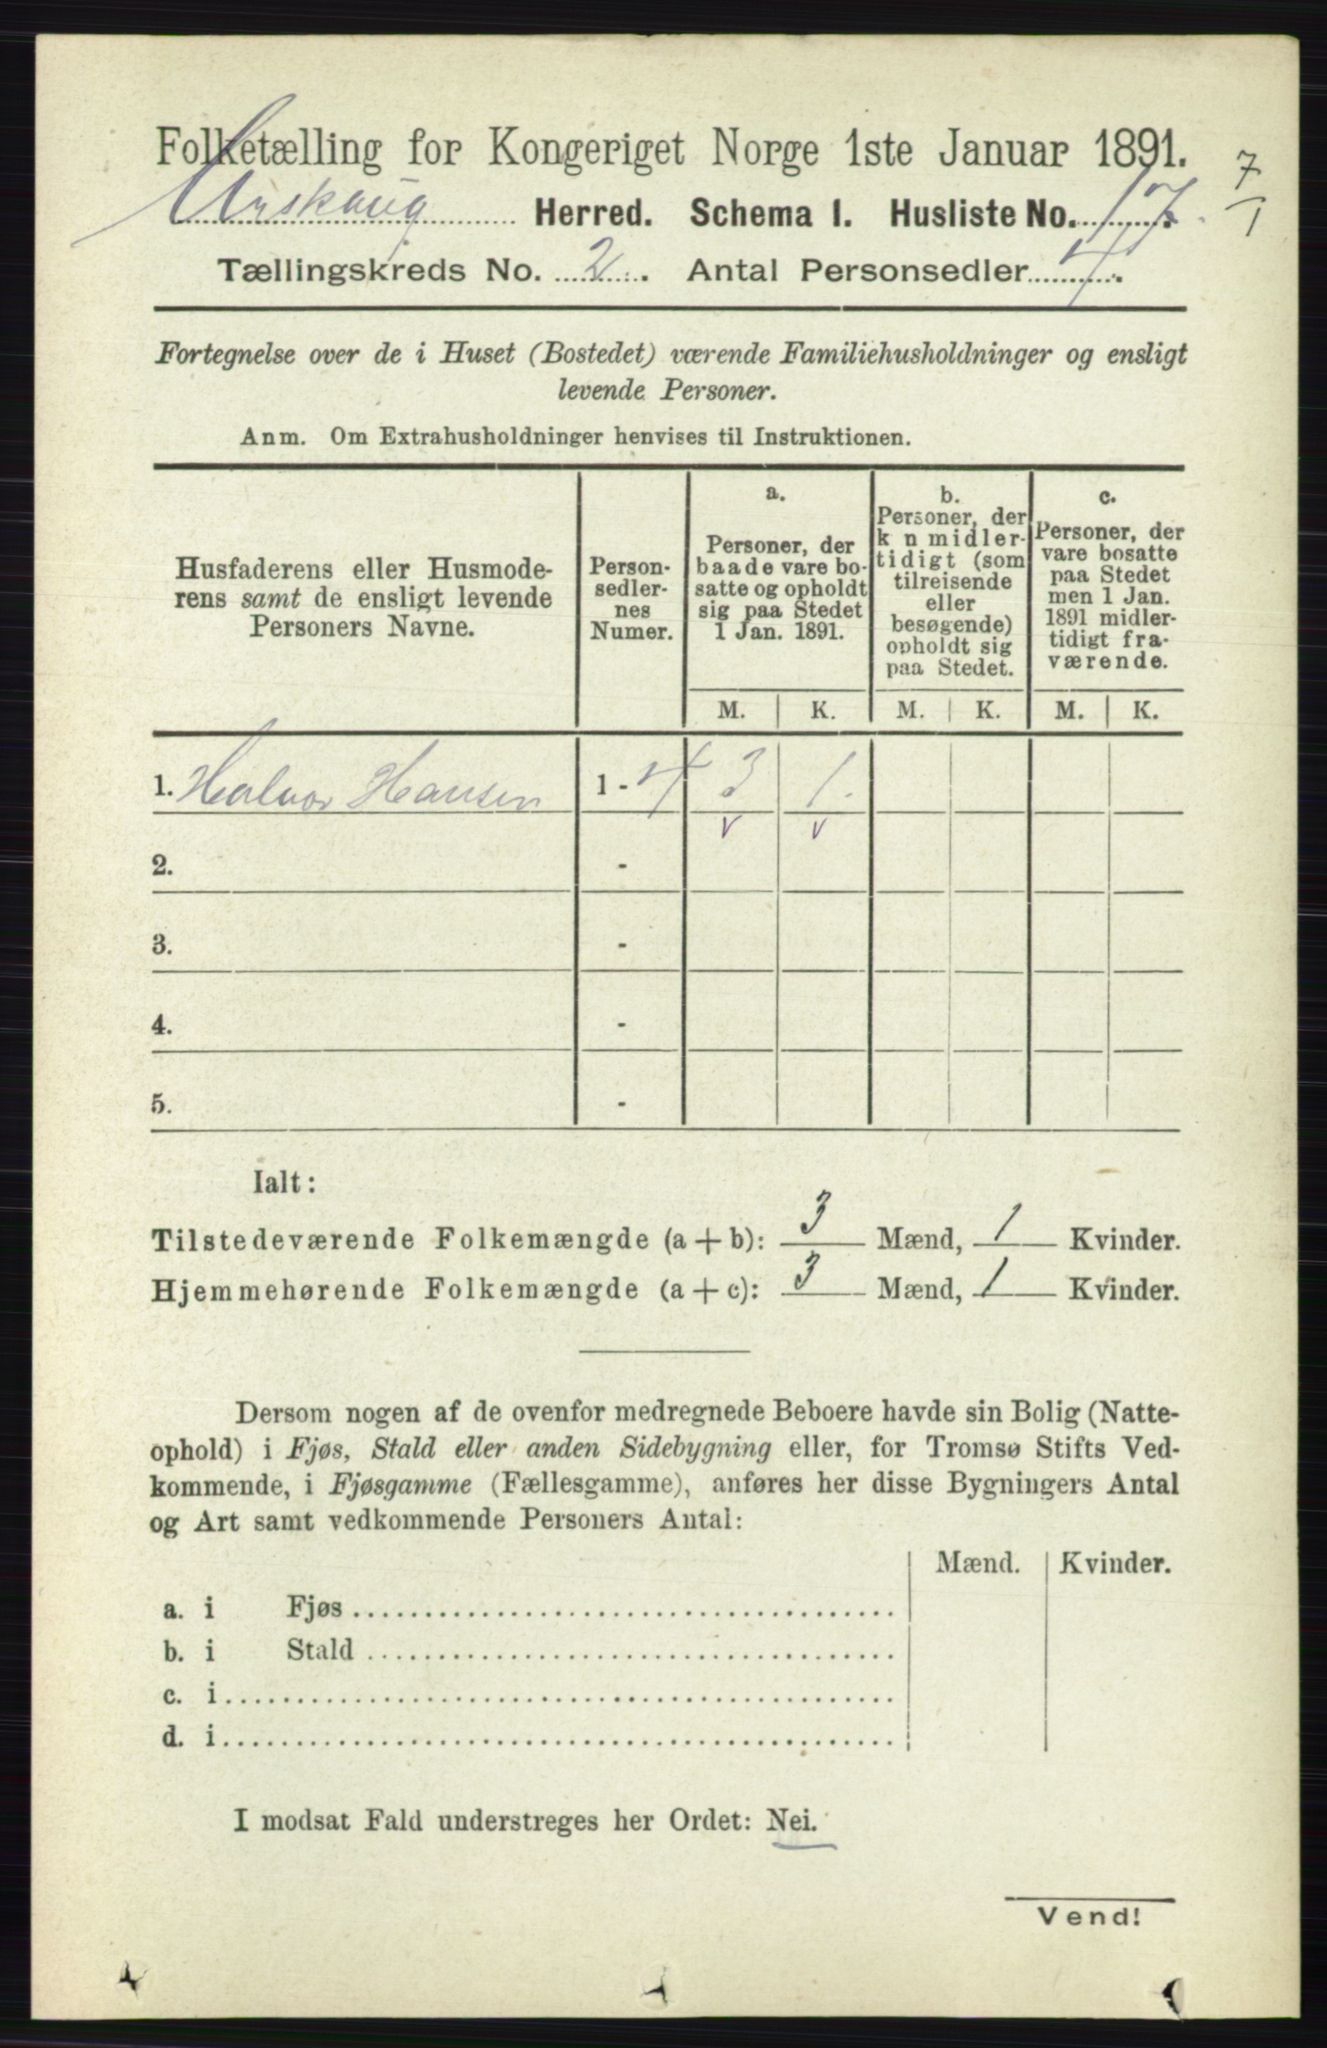 Folketælling for Kongeriget Norge 1ste Januar 1891.
Urskoug Herred. Schema 1. Husliste No. 17.
7
1
Tællingskreds No. 2. Antal Personsedler 4.
Fortegnelse over de i Huset (Bostedet) værende Familiehusholdninger og ensligt
levende Personer.
Anm. Om Extrahusholdninger henvises til Instruktionen.
Husfaderens eller Husmode-
rens samt de ensligt levende
Personers Navne.
Person-
sedler-
nes
Numer.
a.
Personer, der
baade vare bo-
satte og opholdt
sig paa Stedet
1 Jan. 1891.
b.
Personer, der
k n midler-
tidigt (som
tilreisende
eller
besøgende)
opholdt sig
paa Stedet.
c.
Personer, der
vare bosatte
paa Stedet
men 1 Jan.
1891 midler-
tidigt fra-
værende.
M. K. M. K. M. K.
1. Halvor Hansen 1 - 4 3 1.
v v
2. -
3. -
4. -
5. -
Ialt:
Tilstedeværende Folkemængde (a + b): 3 Mænd, 1 Kvinder.
Hjemmehørende Folkemængde (a + c): 3 Mænd, 1 Kvinder.
Dersom nogen af de ovenfor medregnede Beboere havde sin Bolig (Natte-
ophold) i Fjøs, Stald eller anden Sidebygning eller, for Tromsø Stifts Ved-
kommende, i Fjøsgamme (Fællesgamme), anføres her disse Bygningers Antal
og Art samt vedkommende Personers Antal:
Mænd. Kvinder.
a. i Fjøs
b. i Stald
c. i
d. i
I modsat Fald understreges her Ordet: Nei.
Vend!